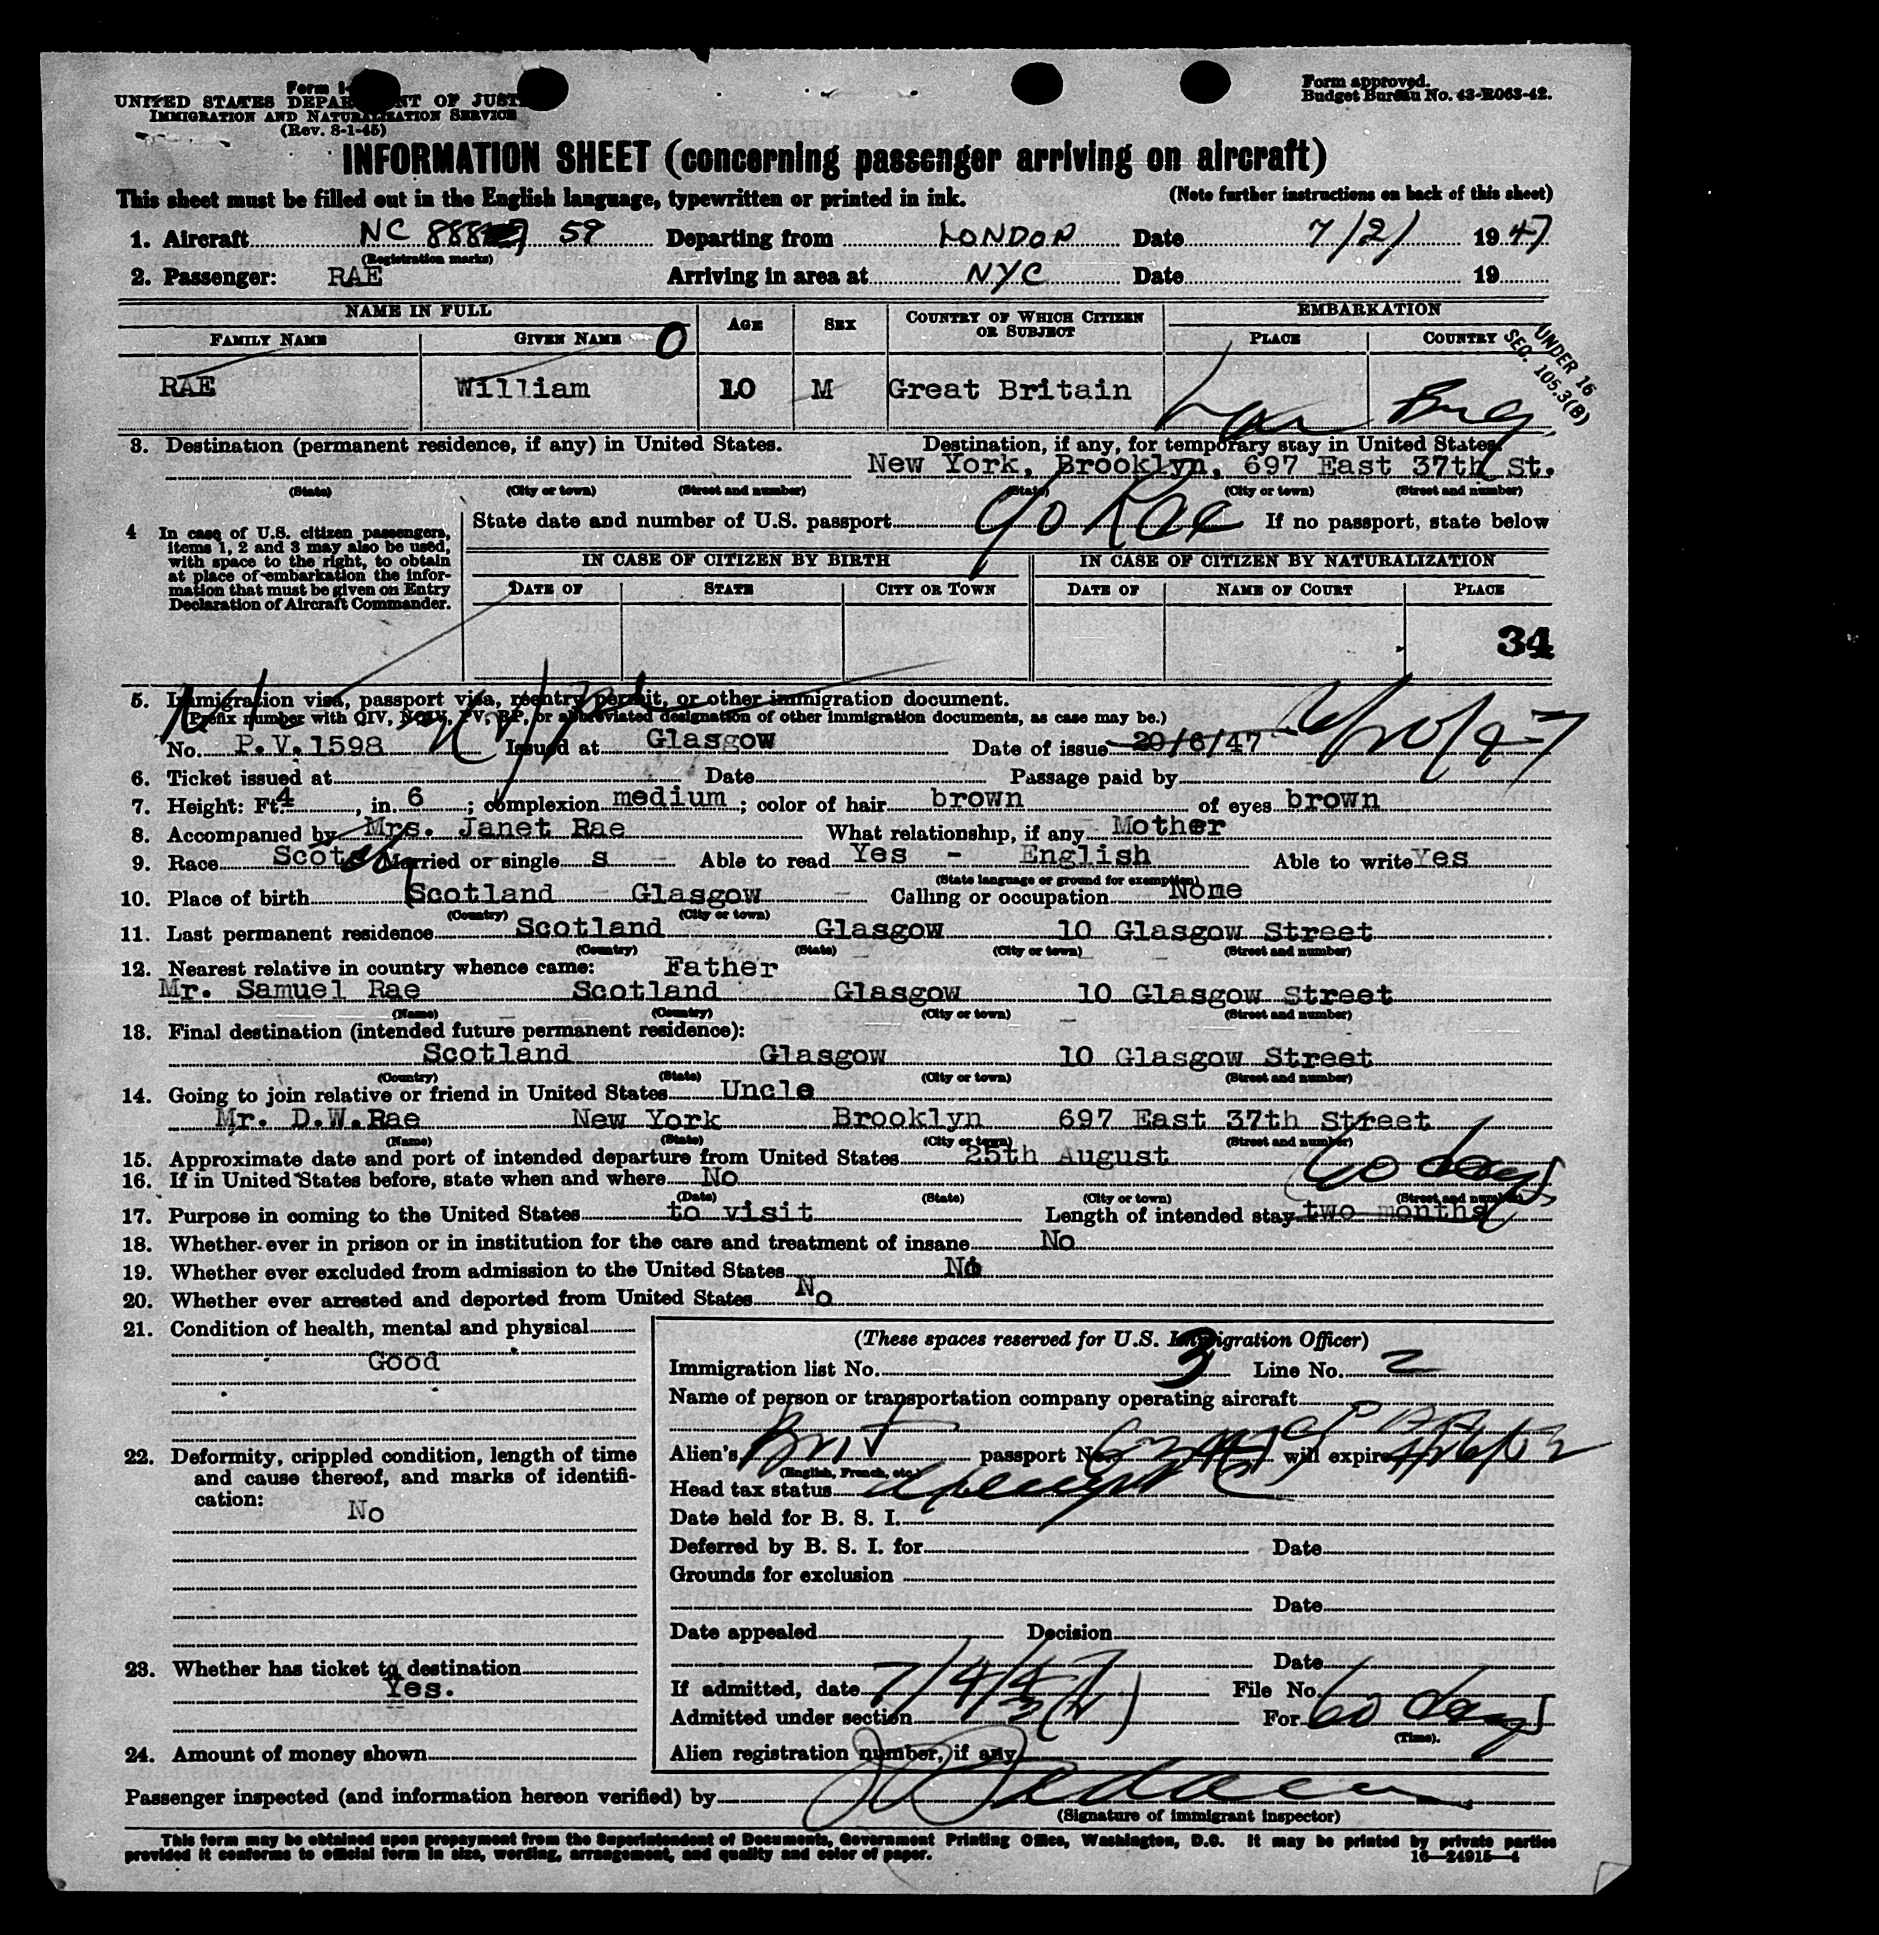 Form I-
UNITED STATES DEPAR NT OF JUST
IMMIGRATION AND NATURALIZATION SERVICE
(Rev. 8-1-45)
Form approved.
Budget Bureau No. 43-R063-42.
INFORMATION SHEET (concerning passenger arriving on aircraft)
This sheet must be filled out in the English language, typewritten or printed in ink. (Note further instructions on back of this sheet)
1. Aircraft NC 888 59 Departing from LONDON Date 7/2/ 1947
(Registration marks)
2. Passenger: RAE Arriving in area at NYC Date 19
NAME IN FULL AGE SEX COUNTRY OF WHICH CITIZEN OR SUBJECT EMBARKATION
FAMILY NAME GIVEN NAME O PLACE COUNTRY
UNDER 16
SEQ. 105.3(B)
RAE William 10 M Great Britain Lon Eng
3. Destination (permanent residence, if any) in United States. Destination, if any, for temporary stay in United States.
New York, Brooklyn, 697 East 37th St.
(State) (City or town) (Street and number) (State) (City or town) (Street and number)
c/o Rae
4 In case of U.S. citizen passengers, items 1, 2 and 3 may also be used, with space to the right, to obtain at place of embarkation the information that must be given on Entry Declaration of Aircraft Commander.
State date and number of U.S. passport If no passport, state below
IN CASE OF CITIZEN BY BIRTH IN CASE OF CITIZEN BY NATURALIZATION
DATE OF STATE CITY OR TOWN DATE OF NAME OF COURT PLACE
34
5. Immigration visa, passport visa, reentry permit, or other immigration document.
(Prefix number with QIV, NQIV, PV, RP, or abbreviated designation of other immigration documents, as case may be.)
No. P.V. 1598 Issued at Glasgow Date of issue 20/6/47 6/20/47
6. Ticket issued at Date Passage paid by
7. Height: Ft. 4, in. 6; complexion medium; color of hair brown of eyes brown
8. Accompanied by Mrs. Janet Rae What relationship, if any Mother
9. Race Scots Married or single s Able to read Yes - English Able to write Yes
(State language or ground for exemption)
10. Place of birth Scotland - Glasgow - Calling or occupation None
(Country) (City or town)
11. Last permanent residence Scotland Glasgow 10 Glasgow Street
(Country) (State) (City or town) (Street and number)
12. Nearest relative in country whence came: Father
Mr. Samuel Rae Scotland Glasgow 10 Glasgow Street
(Name) (Country) (City or town) (Street and number)
13. Final destination (intended future permanent residence):
Scotland Glasgow 10 Glasgow Street
(Country) (State) (City or town) (Street and number)
14. Going to join relative or friend in United States Uncle
Mr. D.W.Rae New York Brooklyn 697 East 37th Street
(Name) (State) (City or town) (Street and number)
15. Approximate date and port of intended departure from United States 25th August
16. If in United States before, state when and where No
60 days
(Date) (State) (City or town) (Street and number)
17. Purpose in coming to the United States to visit Length of intended stay two months
18. Whether ever in prison or in institution for the care and treatment of insane No
19. Whether ever excluded from admission to the United States No
20. Whether ever arrested and deported from United States No
21. Condition of health, mental and physical
Good
22. Deformity, crippled condition, length of time
and cause thereof, and marks of identifi-
cation:
No
23. Whether has ticket to destination
Yes.
24. Amount of money shown
(These spaces reserved for U.S. Immigration Officer)
Immigration list No. 3 Line No. 2
Name of person or transportation company operating aircraft
Alien's Brit passport No. will expire
(English, French, etc.)
Head tax status
Date held for B. S. I.
Deferred by B. S. I. for Date
Grounds for exclusion
Date
Date appealed Decision
Date
If admitted, date 7/4/47 File No.
Admitted under section 3(2) For 60 days
(Time).
Alien registration number, if any
Passenger inspected (and information hereon verified) by
(Signature of immigrant inspector)
This form may be obtained upon prepayment from the Superintendent of Documents, Government Printing Office, Washington, D.C. It may be printed by private parties
provided it conforms to official form in size, wording, arrangement, and quality and color of paper. 16—24915-4